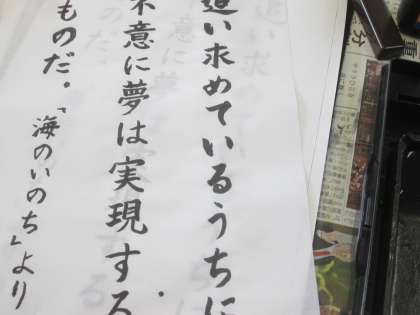 追い求めているうちに
不意に夢は実現する
ものだ。「海のいのち」より